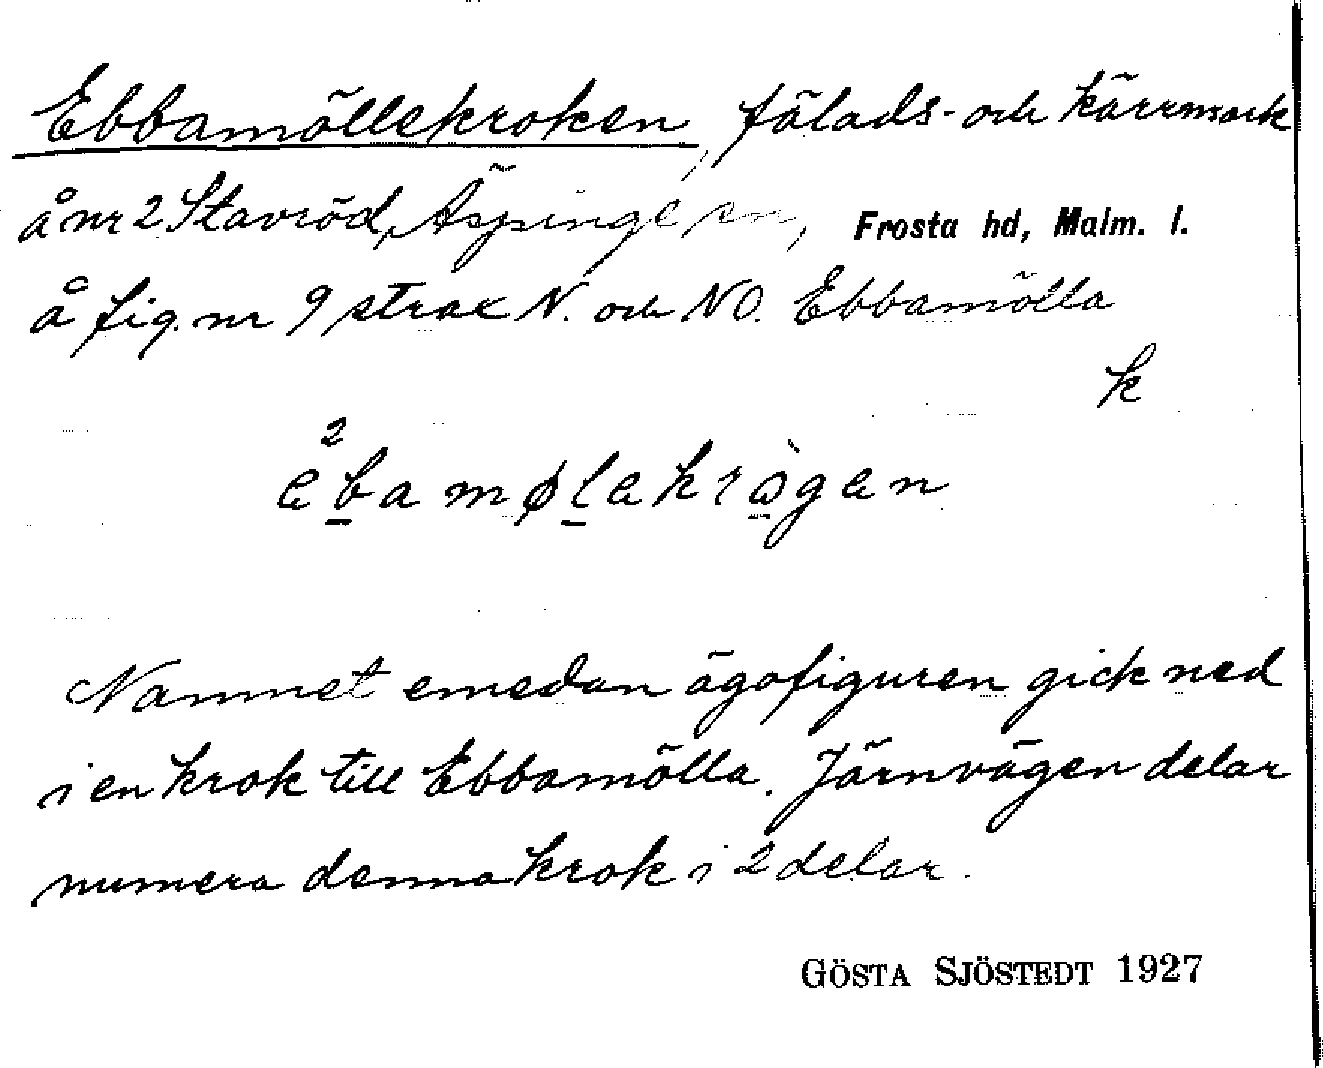 Ebbamöllekroken, fälads- och kärrmark
å nr 2 Stavröd, Äspinge sn, Frosta hd, Malm. l.
å fig. nr 9 strax N. och NO. Ebbamölla
k
2
ebamølekrògen
Namnet emedan ägofiguren gick ned
i en krok till Ebbamölla. Järnvägen delar
numera denna krok i 2 delar.
GÖSTA SJÖSTEDT 1927